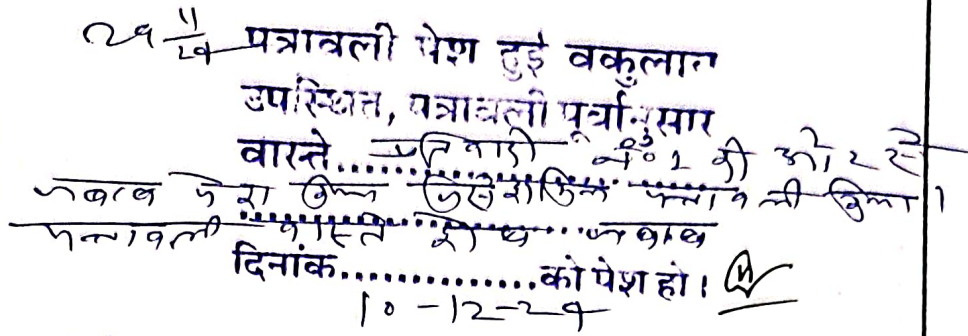 29 11/24 पत्रावली पेश हुई वकुलान
उपस्थित, पत्रावली पूर्वानुसार
वास्ते.....प्रतिवादी नं० 1 की ओर से
जबाब पेश किया जिसे शामिल पत्रावली किया।
पत्रावली वास्ते शेष जबाब
दिनांक...............को पेश हो।
10-12-24